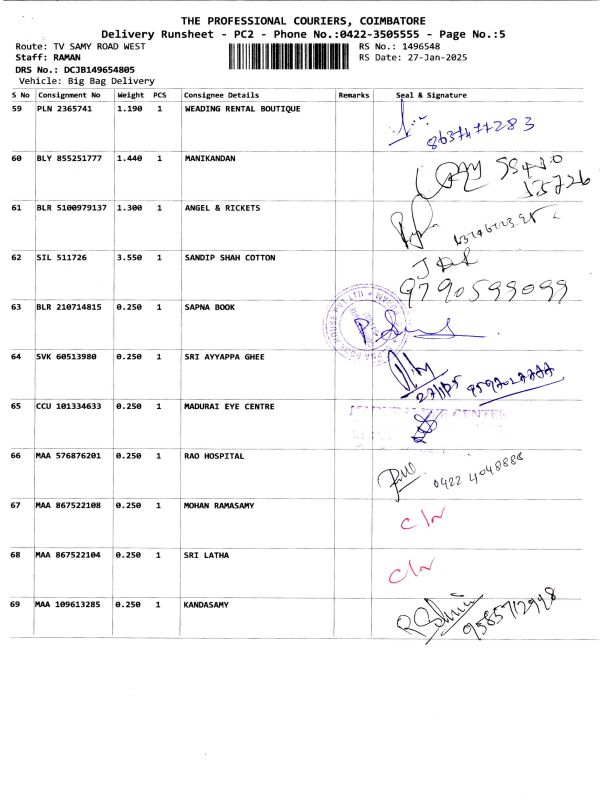 THE PROFESSIONAL COURIERS, COIMBATORE
Delivery Runsheet - PC2 - Phone No.:0422-3505555 - Page No.:5
Route: TV SAMY ROAD WEST RS No.: 1496548
Staff: RAMAN RS Date: 27-Jan-2025
DRS No.: DCJB149654805
Vehicle: Big Bag Delivery
S No Consignment No Weight PCS Consignee Details Remarks Seal & Signature
59 PLN 2365741 1.190 1 WEADING RENTAL BOUTIQUE
8637477283
60 BLY 855251777 1.440 1 MANIKANDAN
61 BLR 5100979137 1.300 1 ANGEL & RICKETS
62 SIL 511726 3.550 1 SANDIP SHAH COTTON
9790599099
63 BLR 210714815 0.250 1 SAPNA BOOK
64 SVK 60513980 0.250 1 SRI AYYAPPA GHEE
65 CCU 101334633 0.250 1 MADURAI EYE CENTRE
CENTRE
66 MAA 576876201 0.250 1 RAO HOSPITAL
0422 4048888
67 MAA 867522108 0.250 1 MOHAN RAMASAMY
68 MAA 867522104 0.250 1 SRI LATHA
69 MAA 109613285 0.250 1 KANDASAMY
9585712998